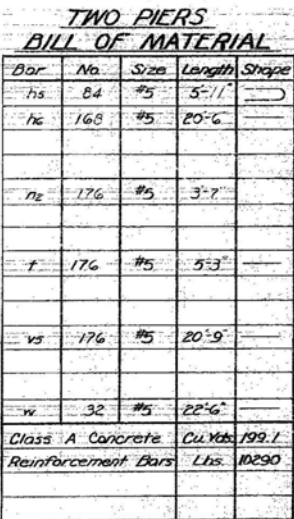 TWO PIERS
BILL OF MATERIAL
Bar No. Size Length Shape
hs 84 #5 5'-11"
hc 168 #5 20'-6"
n2 176 #5 3'-7"
t 176 #5 5'-3"
v5 176 #5 20'-9"
w 32 #5 22'-6"
Class A Concrete Cu.Yds. 199.1
Reinforcement Bars Lbs. 10290